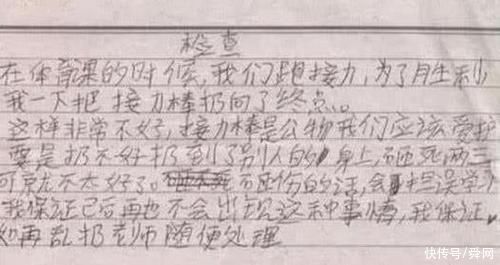 检查
在体育课的时候,我们跑接力,为了月生利
我一下把接力棒扔向了终点。
这样非常不好,接力棒是公物我们应该爱护
要是扔不好扔到了别人的身上,砸死两三
可就不太好了。砸伤的话,会担误学
我保证已后再也不会出现这种事情,我保证
如再乱扔老师随便处理
快传号/舜网